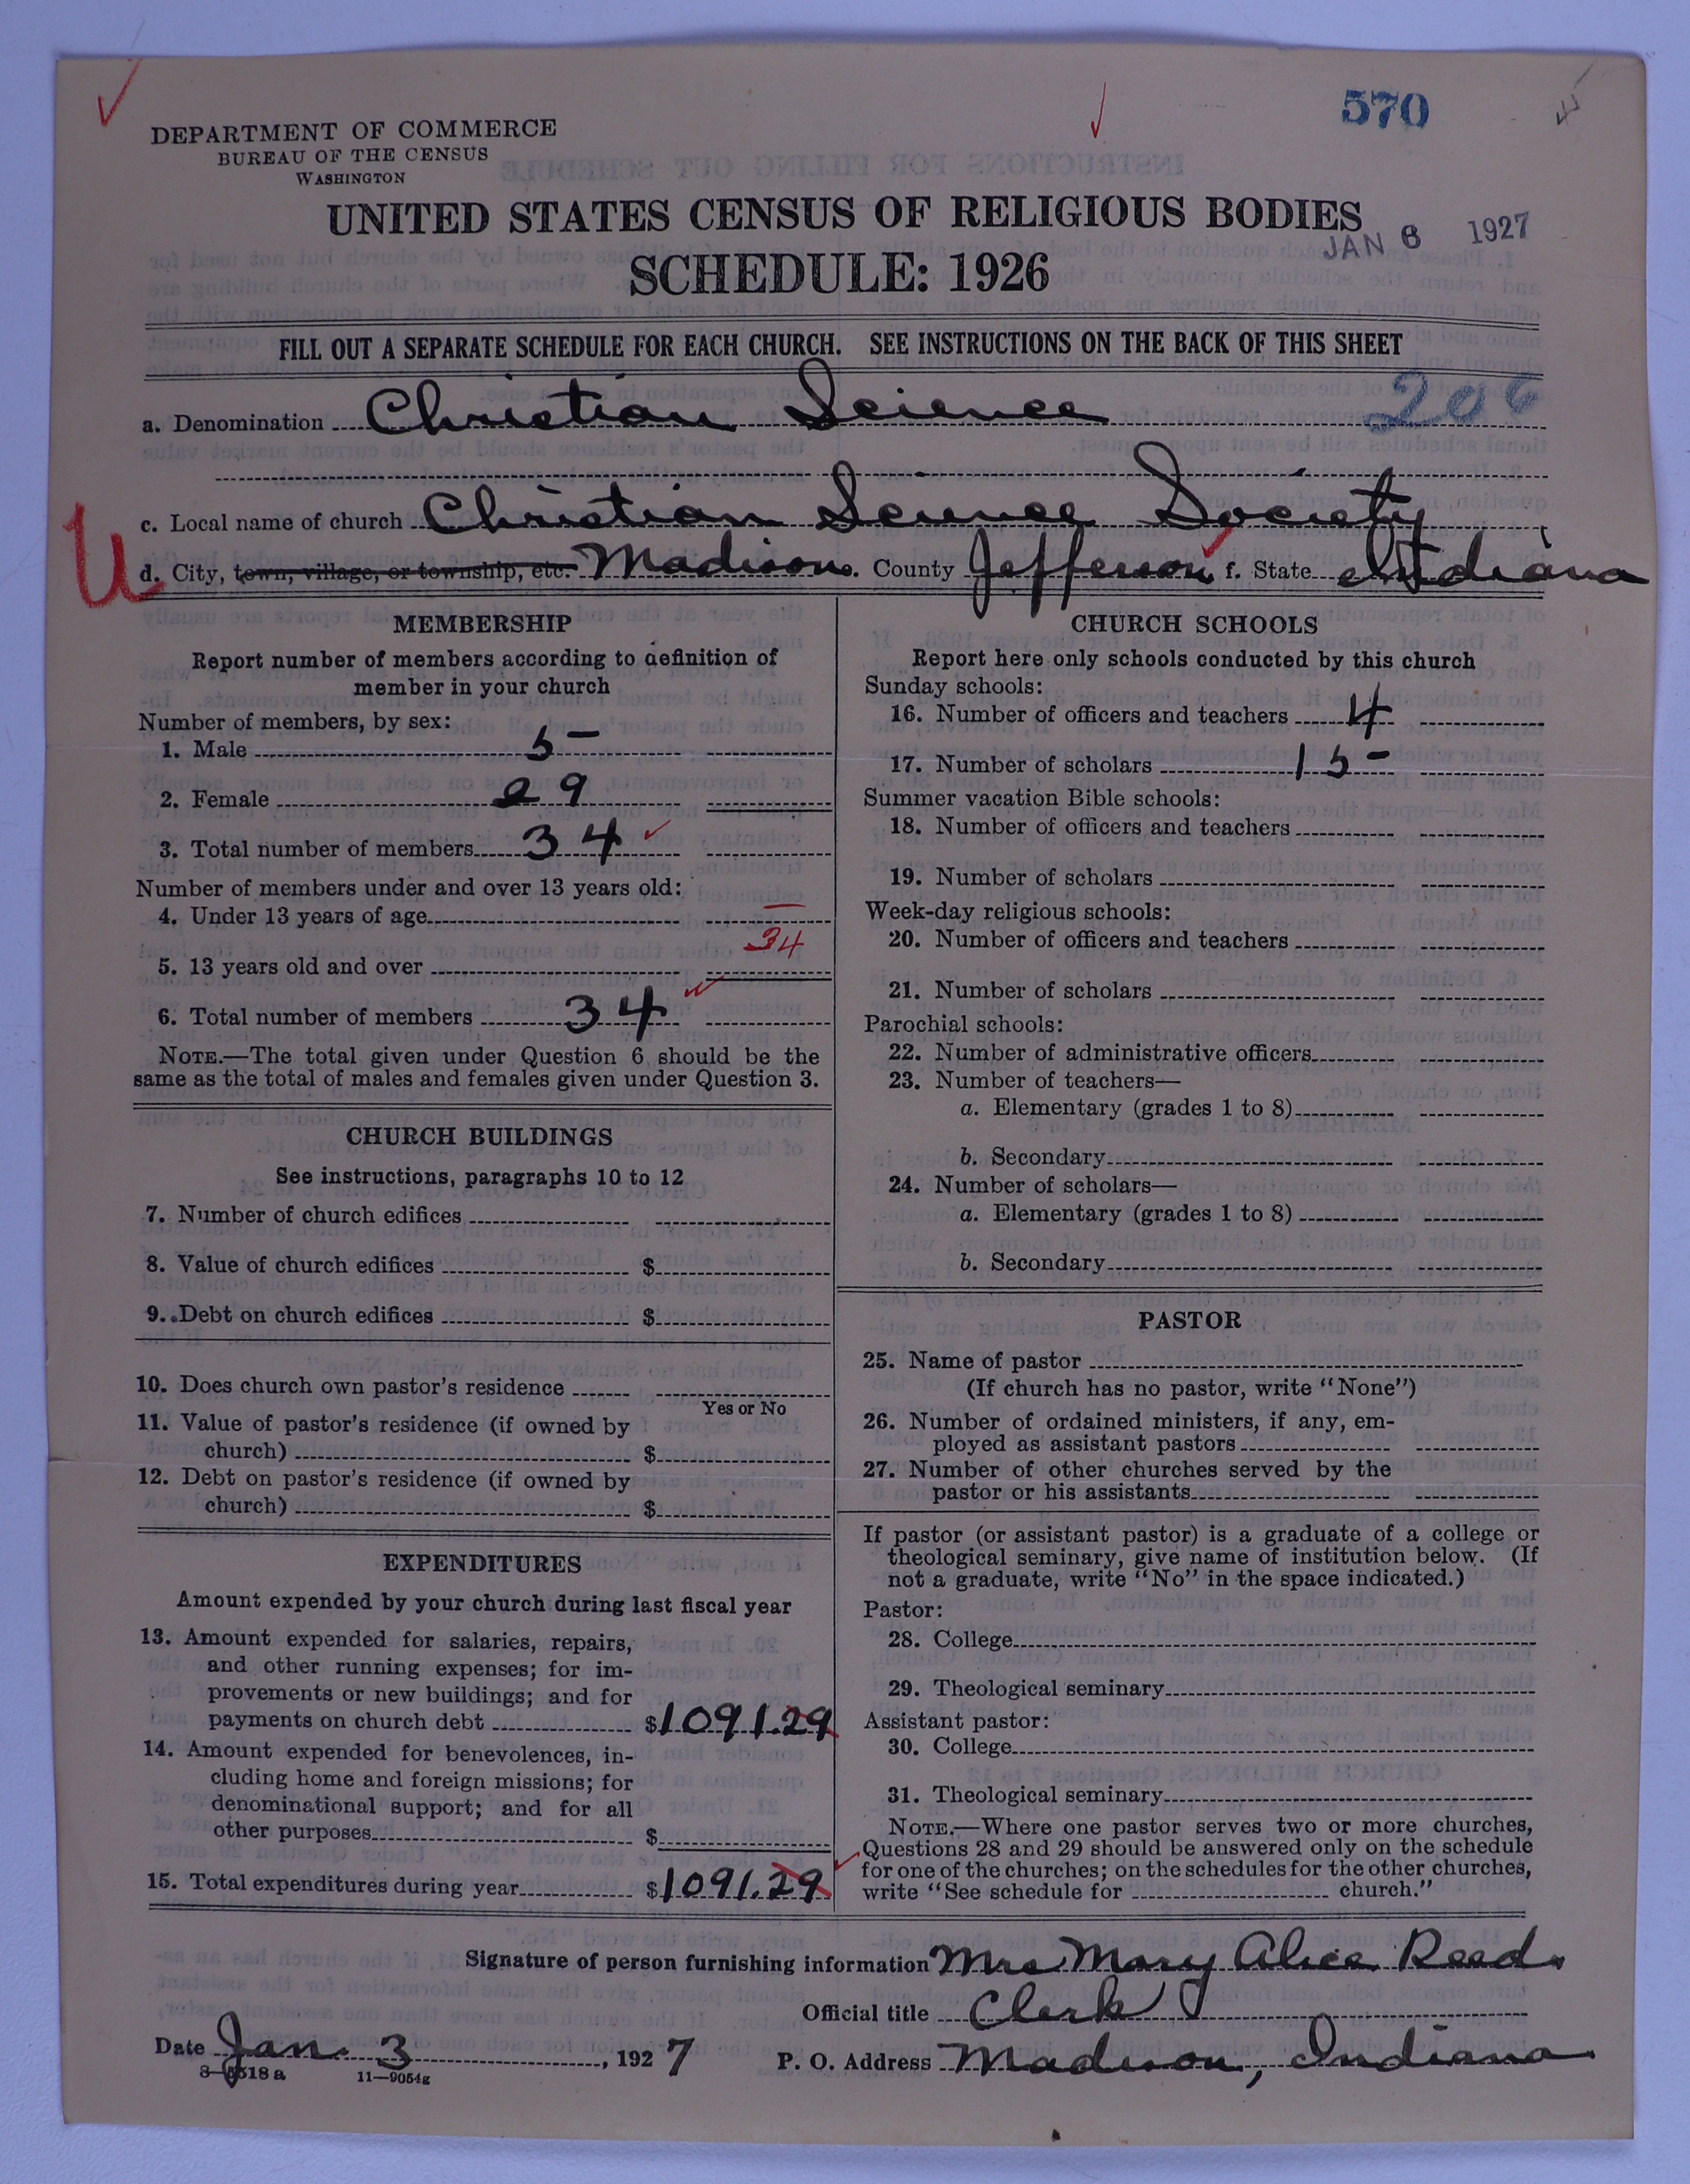 570
DEPARTMENT OF COMMERCE
BUREAU OF THE CENSUS
WASHINGTON
UNITED STATES CENSUS OF RELIGIOUS BODIES
JAN 6 1927
SCHEDULE: 1926
FILL OUT A SEPARATE SCHEDULE FOR EACH CHURCH. SEE INSTRUCTIONS ON THE BACK OF THIS SHEET
206
a. Denomination Christian Science
c. Local name of church Christian Science Society
U
d. City, town, village, or township, etc. Madison. County Jefferson f. State Indiana
MEMBERSHIP
Report number of members according to definition of
member in your church
Number of members, by sex:
1. Male 5
2. Female 29
3. Total number of members 34
Number of members under and over 13 years old:
4. Under 13 years of age —
5. 13 years old and over 34
6. Total number of members 34
NOTE.—The total given under Question 6 should be the
same as the total of males and females given under Question 3.
CHURCH BUILDINGS
See instructions, paragraphs 10 to 12
7. Number of church edifices
8. Value of church edifices $
9. Debt on church edifices $
10. Does church own pastor's residence
Yes or No
11. Value of pastor's residence (if owned by
church) $
12. Debt on pastor's residence (if owned by
church) $
EXPENDITURES
Amount expended by your church during last fiscal year
13. Amount expended for salaries, repairs,
and other running expenses; for im-
provements or new buildings; and for
payments on church debt $1091.29
14. Amount expended for benevolences, in-
cluding home and foreign missions; for
denominational support; and for all
other purposes $
15. Total expenditures during year $1091.29
CHURCH SCHOOLS
Report here only schools conducted by this church
Sunday schools:
16. Number of officers and teachers 4
17. Number of scholars 15
Summer vacation Bible schools:
18. Number of officers and teachers
19. Number of scholars
Week-day religious schools:
20. Number of officers and teachers
21. Number of scholars
Parochial schools:
22. Number of administrative officers
23. Number of teachers—
a. Elementary (grades 1 to 8)
b. Secondary
24. Number of scholars—
a. Elementary (grades 1 to 8)
b. Secondary
PASTOR
25. Name of pastor
(If church has no pastor, write "None")
26. Number of ordained ministers, if any, em-
ployed as assistant pastors
27. Number of other churches served by the
pastor or his assistants
If pastor (or assistant pastor) is a graduate of a college or
theological seminary, give name of institution below. (If
not a graduate, write "No" in the space indicated.)
Pastor:
28. College
29. Theological seminary
Assistant pastor:
30. College
31. Theological seminary
NOTE.—Where one pastor serves two or more churches,
Questions 28 and 29 should be answered only on the schedule
for one of the churches; on the schedules for the other churches,
write "See schedule for church."
Signature of person furnishing information Mrs Mary Alice Reed.
Official title Clerk
Date Jan. 3, 1927
P. O. Address Madison, Indiana
8-6518 a 11—9054g